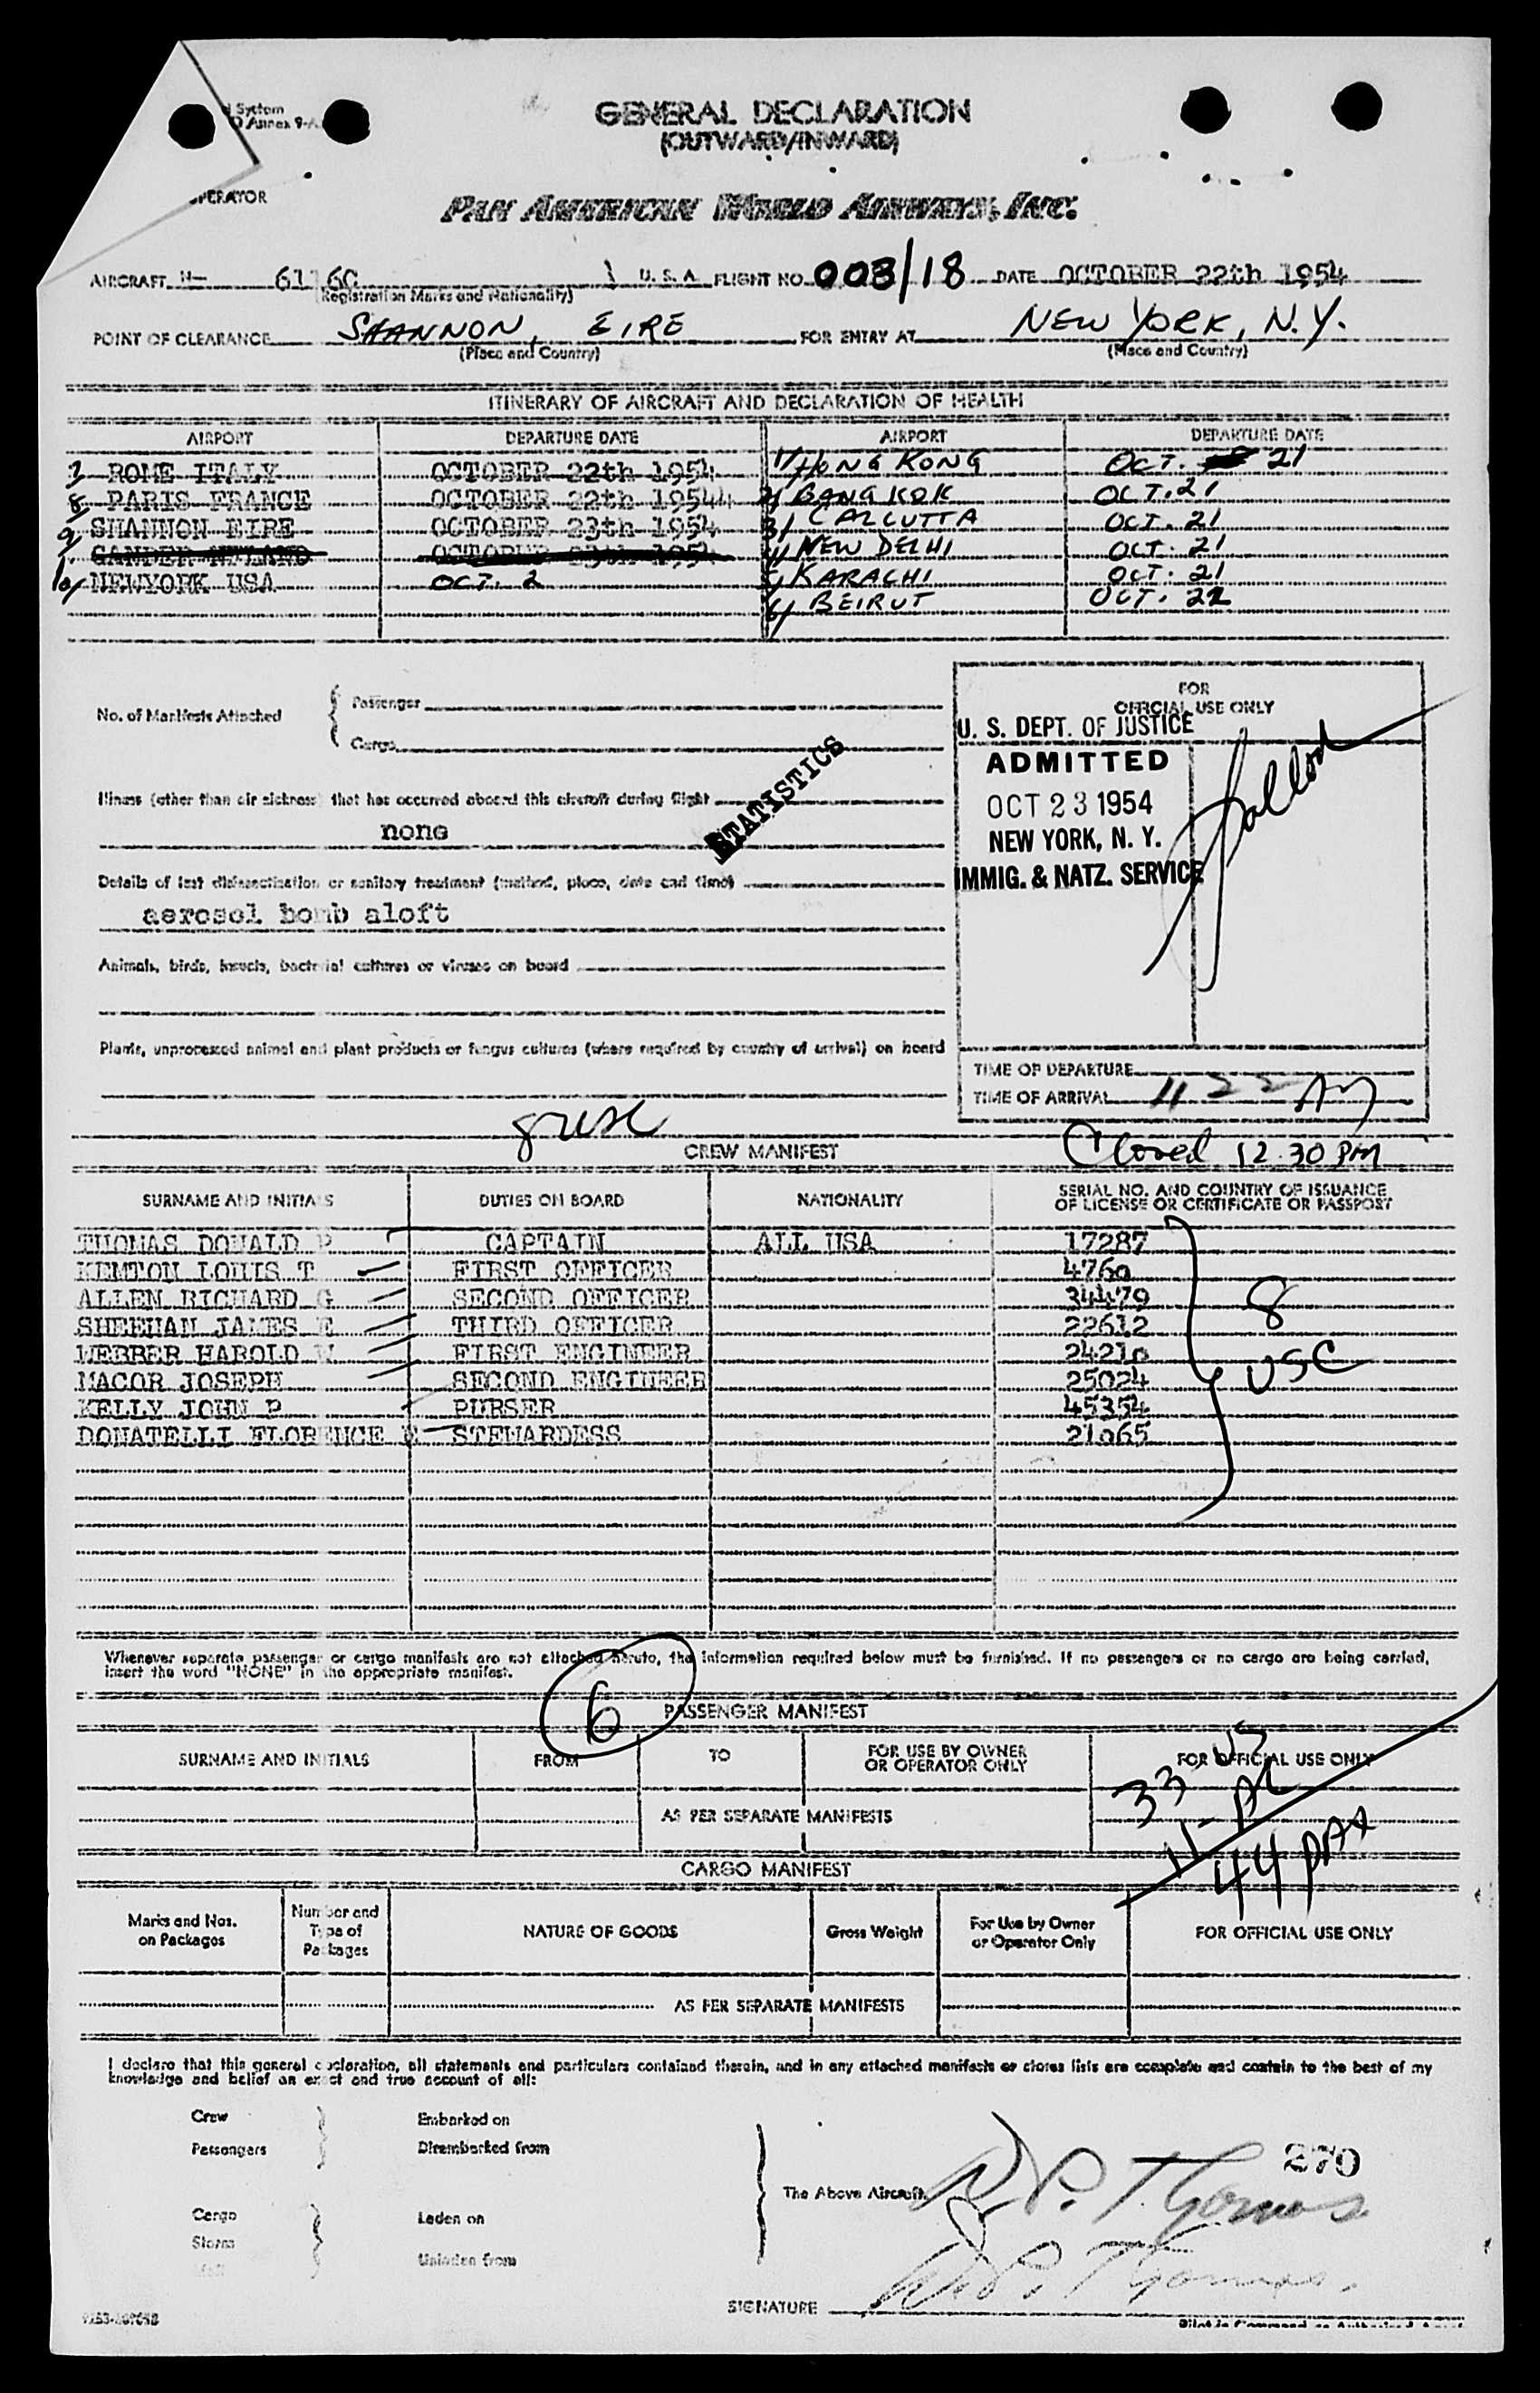 System
Annex 9-A
GENERAL DECLARATION
(OUTWARD/INWARD)
OPERATOR
PAN AMERICAN WORLD AIRWAYS, INC.
AIRCRAFT N- U. S. A. FLIGHT NO. 003/18 DATE OCTOBER 22th 1954
(Registration Marks and Nationality)
POINT OF CLEARANCE SHANNON, EIRE FOR ENTRY AT NEW YORK, N.Y.
(Place and Country) (Place and Country)
ITINERARY OF AIRCRAFT AND DECLARATION OF HEALTH
AIRPORT DEPARTURE DATE AIRPORT DEPARTURE DATE
7/ ROME ITALY OCTOBER 22th 1954 1/ HONG KONG OCT. 21
8/ PARIS FRANCE OCTOBER 22th 1954 2/ BANGKOK OCT. 21
9/ SHANNON EIRE OCTOBER 23th 1954 3/ CALCUTTA OCT. 21
GANDER NFLAND OCTOBER 23th 195 4/ NEW DELHI OCT. 21
10/ NEWYORK USA OCT. 2 5/ KARACHI OCT. 21
6/ BEIRUT OCT. 22
No. of Manifests Attached
Passenger
Cargo
FOR
OFFICIAL USE ONLY
U. S. DEPT. OF JUSTICE
ADMITTED
OCT 23 1954
NEW YORK, N. Y.
IMMIG. & NATZ. SERVICE
STATISTICS
Illness (other than air sickness) that has occurred aboard this aircraft during flight
none
Details of last disinsectisation or sanitary treatment (method, place, date and time)
aerosol bomb aloft
Animals, birds, insects, bacterial cultures or viruses on board
Plants, unprocessed animal and plant products or fungus cultures (where required by country of arrival) on board
TIME OF DEPARTURE
TIME OF ARRIVAL 11 22 AM
8 USC
CREW MANIFEST
Closed 12.30 PM
SURNAME AND INITIALS DUTIES ON BOARD NATIONALITY SERIAL NO. AND COUNTRY OF ISSUANCE
OF LICENSE OR CERTIFICATE OR PASSPORT
THOMAS DONALD P CAPTAIN ALL USA 17287
KEMTON LOUIS T FIRST OFFICER 4760
ALLEN RICHARD G SECOND OFFICER 34479
SHEEHAN JAMES E THIRD OFFICER 22612
WEBBER HAROLD W FIRST ENGINEER 24210
MACOR JOSEPH SECOND ENGINEER 25024
KELLY JOHN P PURSER 45354
DONATELLI FLORENCE STEWARDESS 21065
8
USC
Whenever separate passenger or cargo manifests are not attached hereto, the information required below must be furnished. If no passengers or no cargo are being carried,
insert the word "NONE" in the appropriate manifest.
6
PASSENGER MANIFEST
SURNAME AND INITIALS FROM TO FOR USE BY OWNER
OR OPERATOR ONLY FOR OFFICIAL USE ONLY
33 US
11
44 PAX
AS PER SEPARATE MANIFESTS
CARGO MANIFEST
Marks and Nos.
on Packages
Number and
Type of
Packages
NATURE OF GOODS
Gross Weight
For Use by Owner
or Operator Only
FOR OFFICIAL USE ONLY
AS PER SEPARATE MANIFESTS
I declare that this general declaration, all statements and particulars contained therein, and in any attached manifests or stores lists are complete and contain to the best of my
knowledge and belief an exact and true account of all:
Crew Embarked on
Passengers Disembarked from
The Above Aircraft
Cargo Laden on
Stores
Unladen from
270
D.P. Thomas
D.P. Thomas
SIGNATURE
Pilot in Command or Authorized